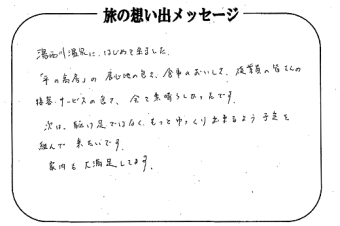 旅の想い出メッセージ
湯西川温泉に、はじめて来ました。
「平の高房」の居心地の良さ、食事のおいしさ、従業員の皆さんの
接客・サービスの良さ、全て素晴らしかったです。
次は、駆け足ではなく、もっとゆっくり出来るよう予定を
組んで来たいです。
家内も大満足してます。